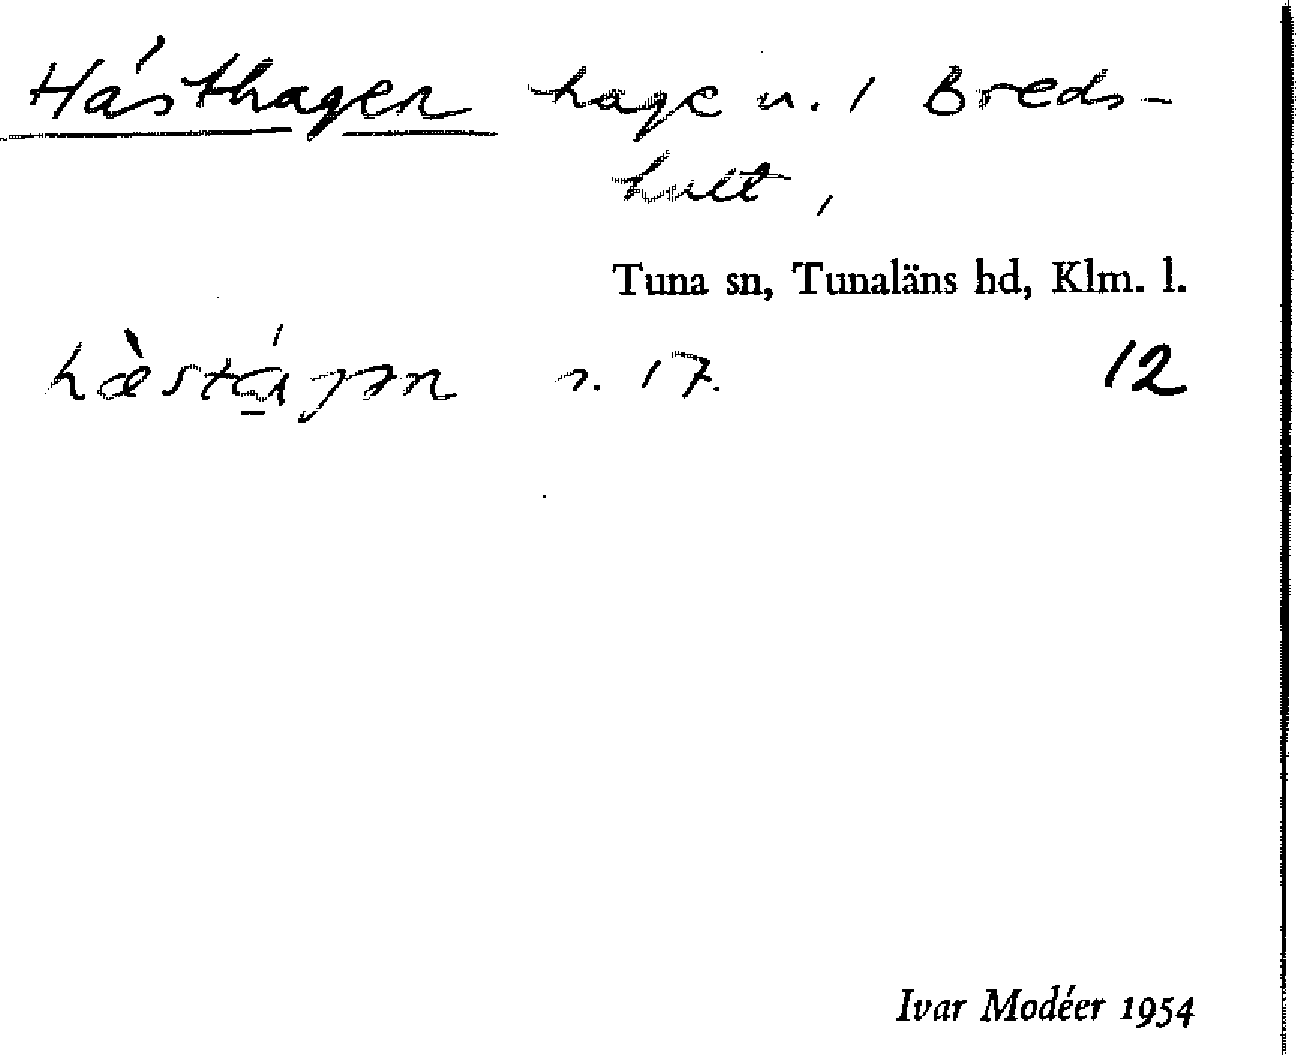 Hásthagen hage u. / Breds-
hult,
Tuna sn, Tunaläns hd, Klm. l.
hæ̀stá̱gən s. 17. 12
Ivar Modéer 1954